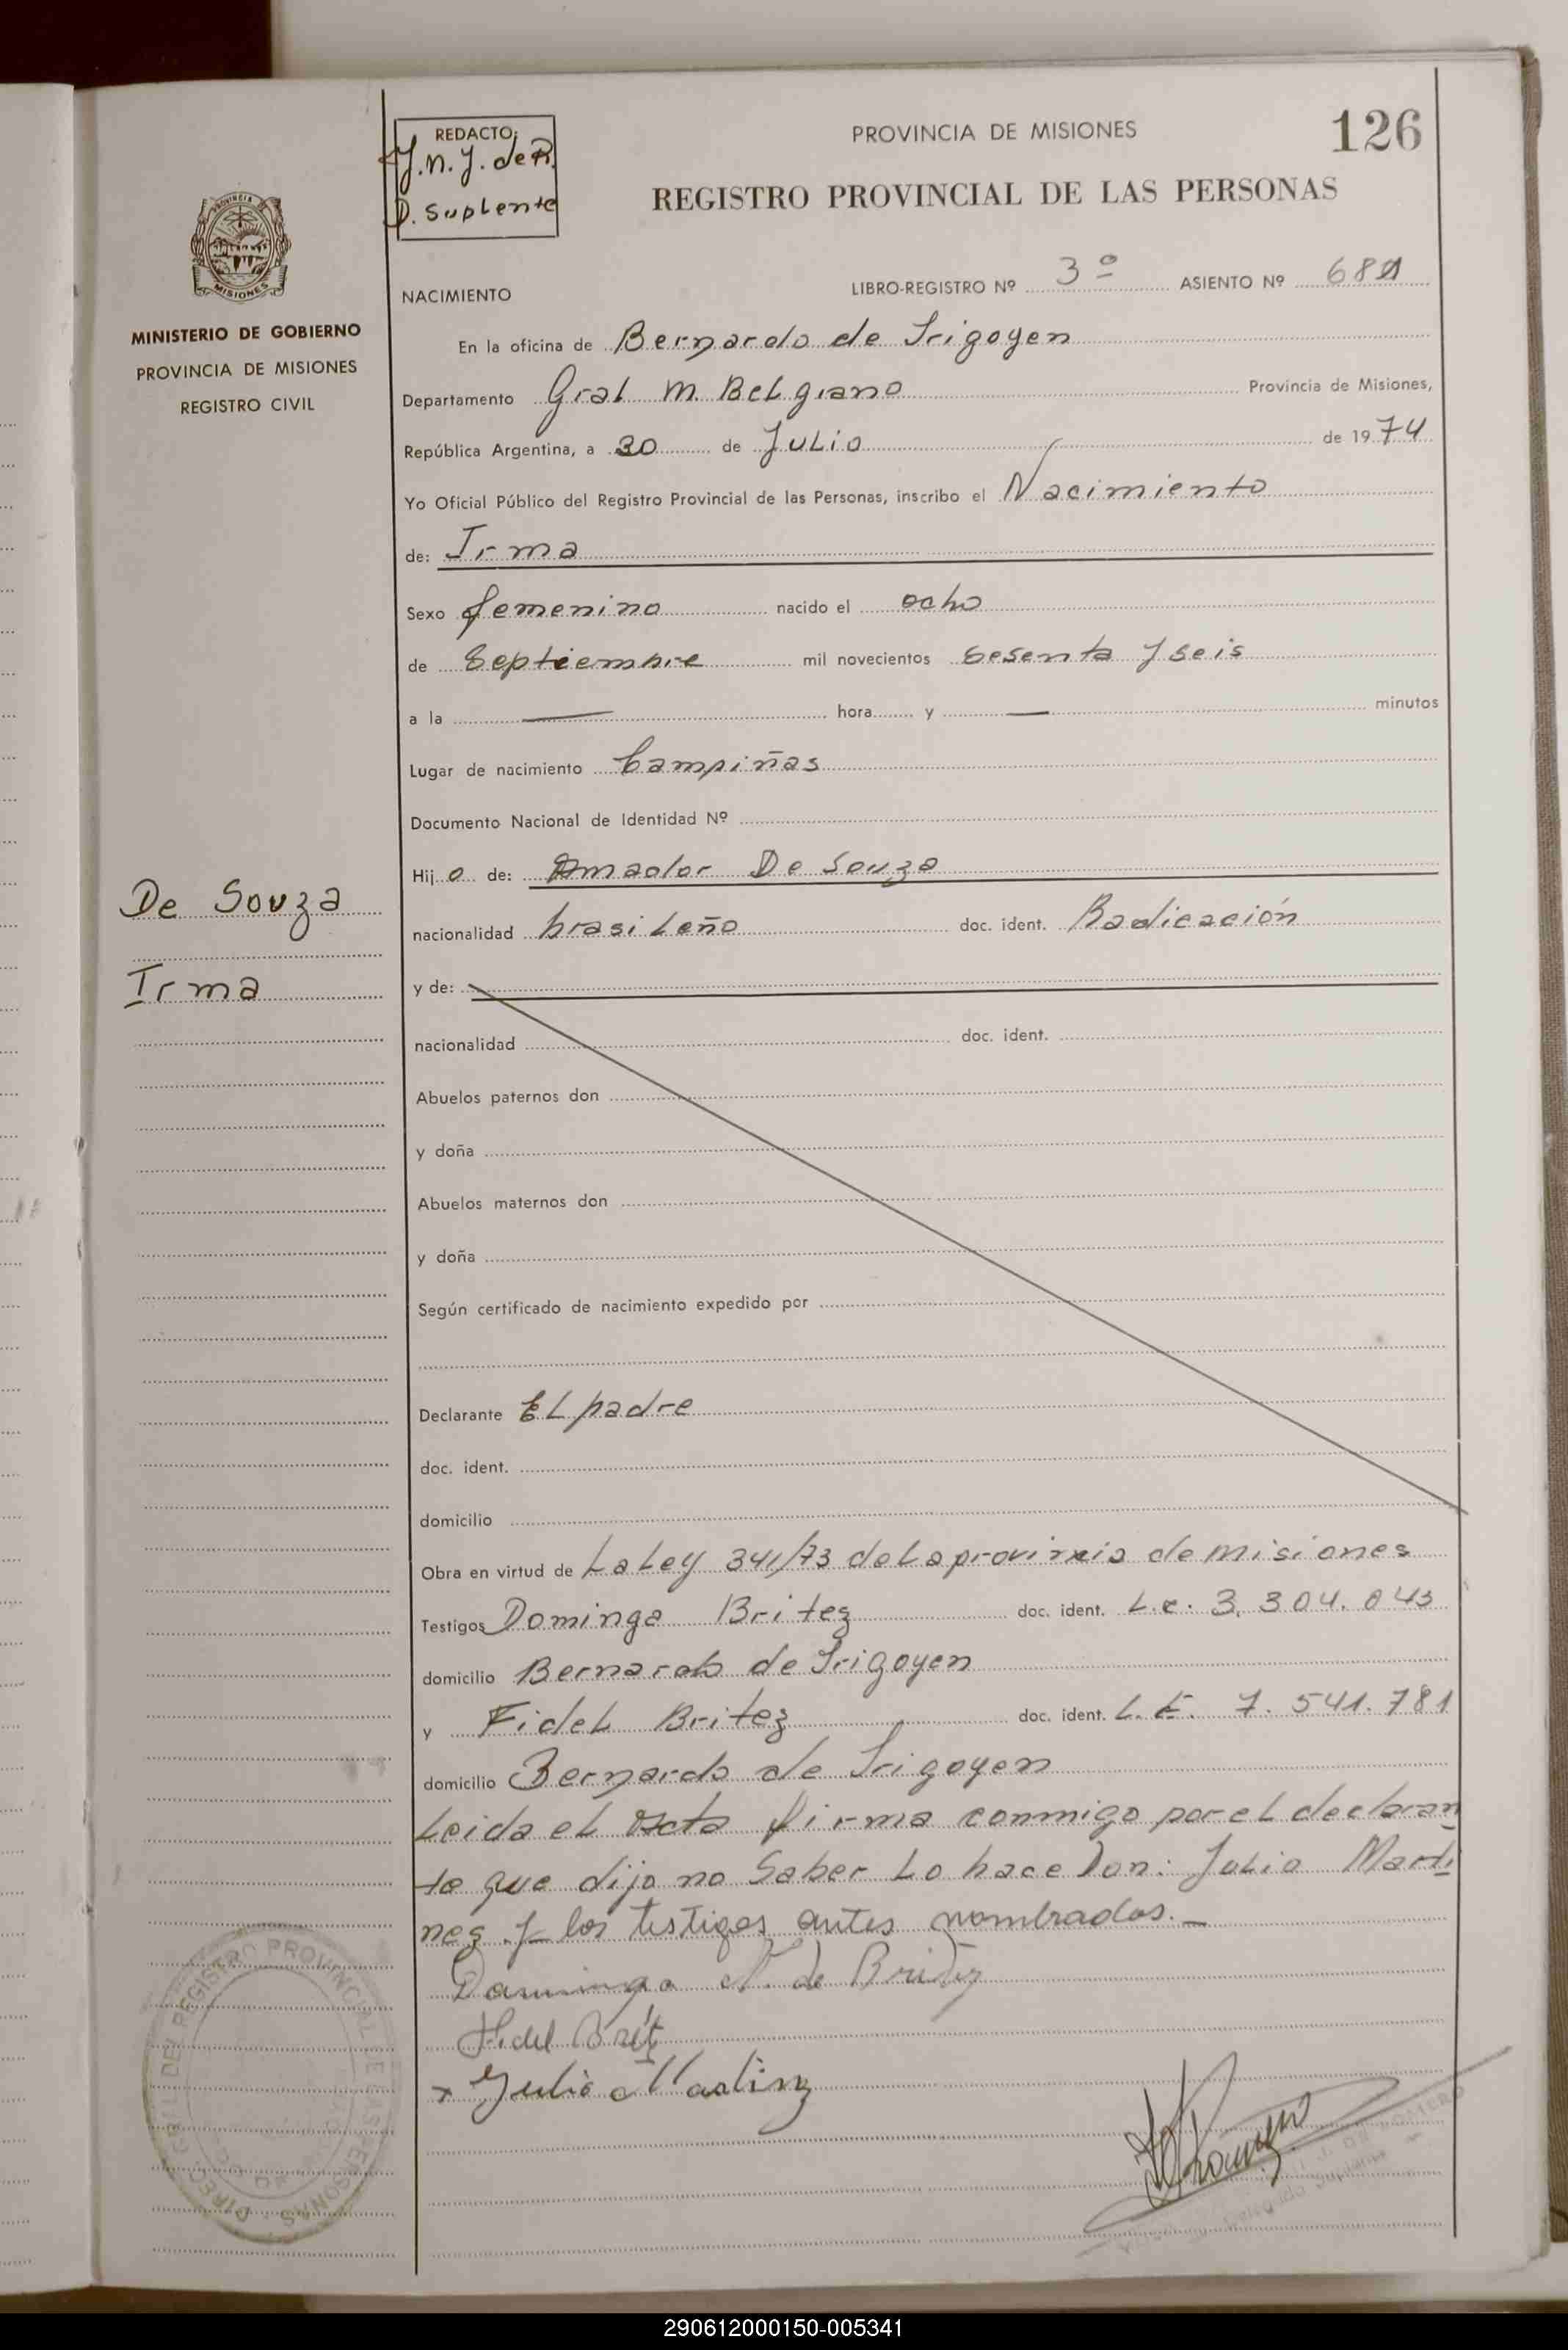 REDACTO:
J.n.J. de R.
D. Suplente
PROVINCIA DE MISIONES
126
REGISTRO PROVINCIAL DE LAS PERSONAS
PROVINCIA DE
MISIONES
MINISTERIO DE GOBIERNO
PROVINCIA DE MISIONES
REGISTRO CIVIL
NACIMIENTO
LIBRO-REGISTRO Nº 3º ASIENTO Nº
En la oficina de Bernardo de Irigoyen
Departamento Gral M. Belgrano Provincia de Misiones,
República Argentina, a 30 de Julio de 1974
Yo Oficial Público del Registro Provincial de las Personas, inscribo el Nacimiento
de: Irma
Sexo femenino nacido el ocho
de Septiembre mil novecientos sesenta y seis
a la — hora y — minutos
Lugar de nacimiento Campiñas
Documento Nacional de Identidad Nº
Hijo de: Amador De Souza
De Souza
nacionalidad brasileño doc. ident. Radicación
Irma
y de:
nacionalidad doc. ident.
Abuelos paternos don
y doña
Abuelos maternos don
y doña
Según certificado de nacimiento expedido por
Declarante El padre
doc. ident.
domicilio
Obra en virtud de La Ley 341/73 de La provincia de misiones
Testigos Dominga Britez doc. ident. L.C. 3.304.043
domicilio Bernardo de Irigoyen
y Fidel Britez doc. ident. L.E. 7.541.781
domicilio Bernardo de Irigoyen
Leida el acta firma conmigo por el declaran
te que dijo no Saber Lo hace Don: Julio Marti
nez y los testigos antes nombrados.—
Dominga N. de Britez
Fidel Brit
x Julio Martinz
DIREC. GRAL. DEL REGISTRO PROVINCIAL DE LAS PERSONAS
J. DE ROMERO
Delegada Suplente
290612000150-005341